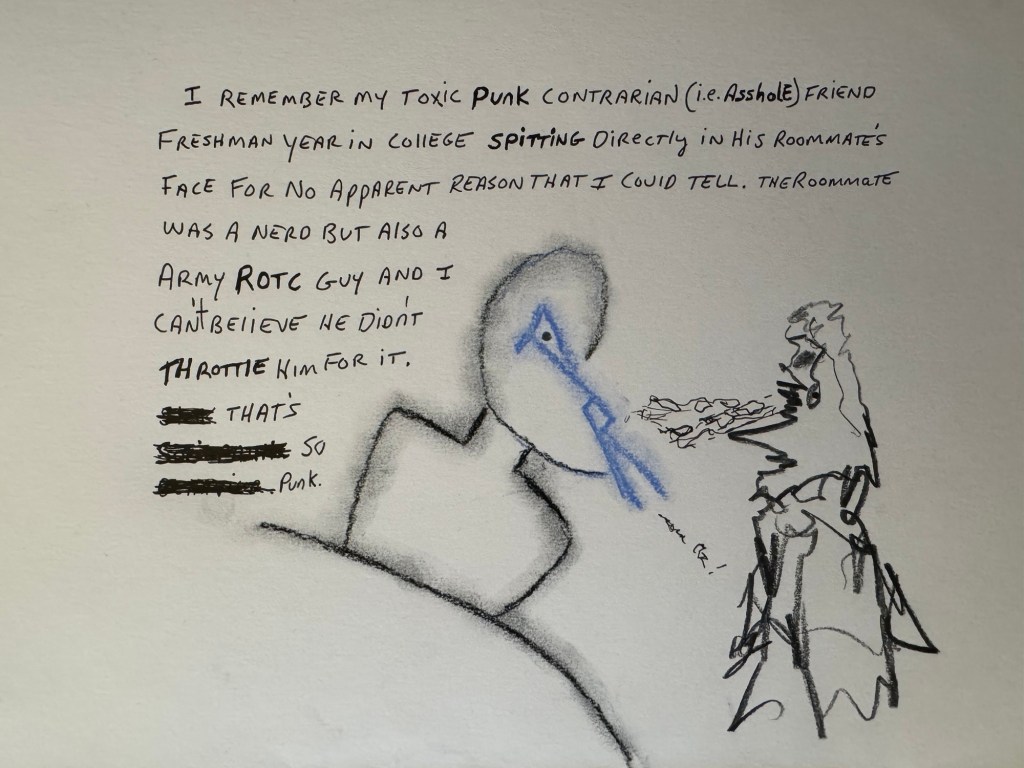 I REMEMBER MY TOXIC PUNK CONTRARIAN (i.e. AsshOlE) FRIEND
FRESHMAN YEAR IN COllEGE SPITTING DIRectly IN HIS ROOMMATE'S
FACE FOR NO APPARENT REASON THAT I COUlD TELL. THE ROOMMaTE
WAS A NERD BUT AlSO A
ARMY ROTC GUY AND I
CAN'T BElIEVE HE DIDN'T
THROTTlE HIM FOR IT.
THAT'S
SO
PUNK.